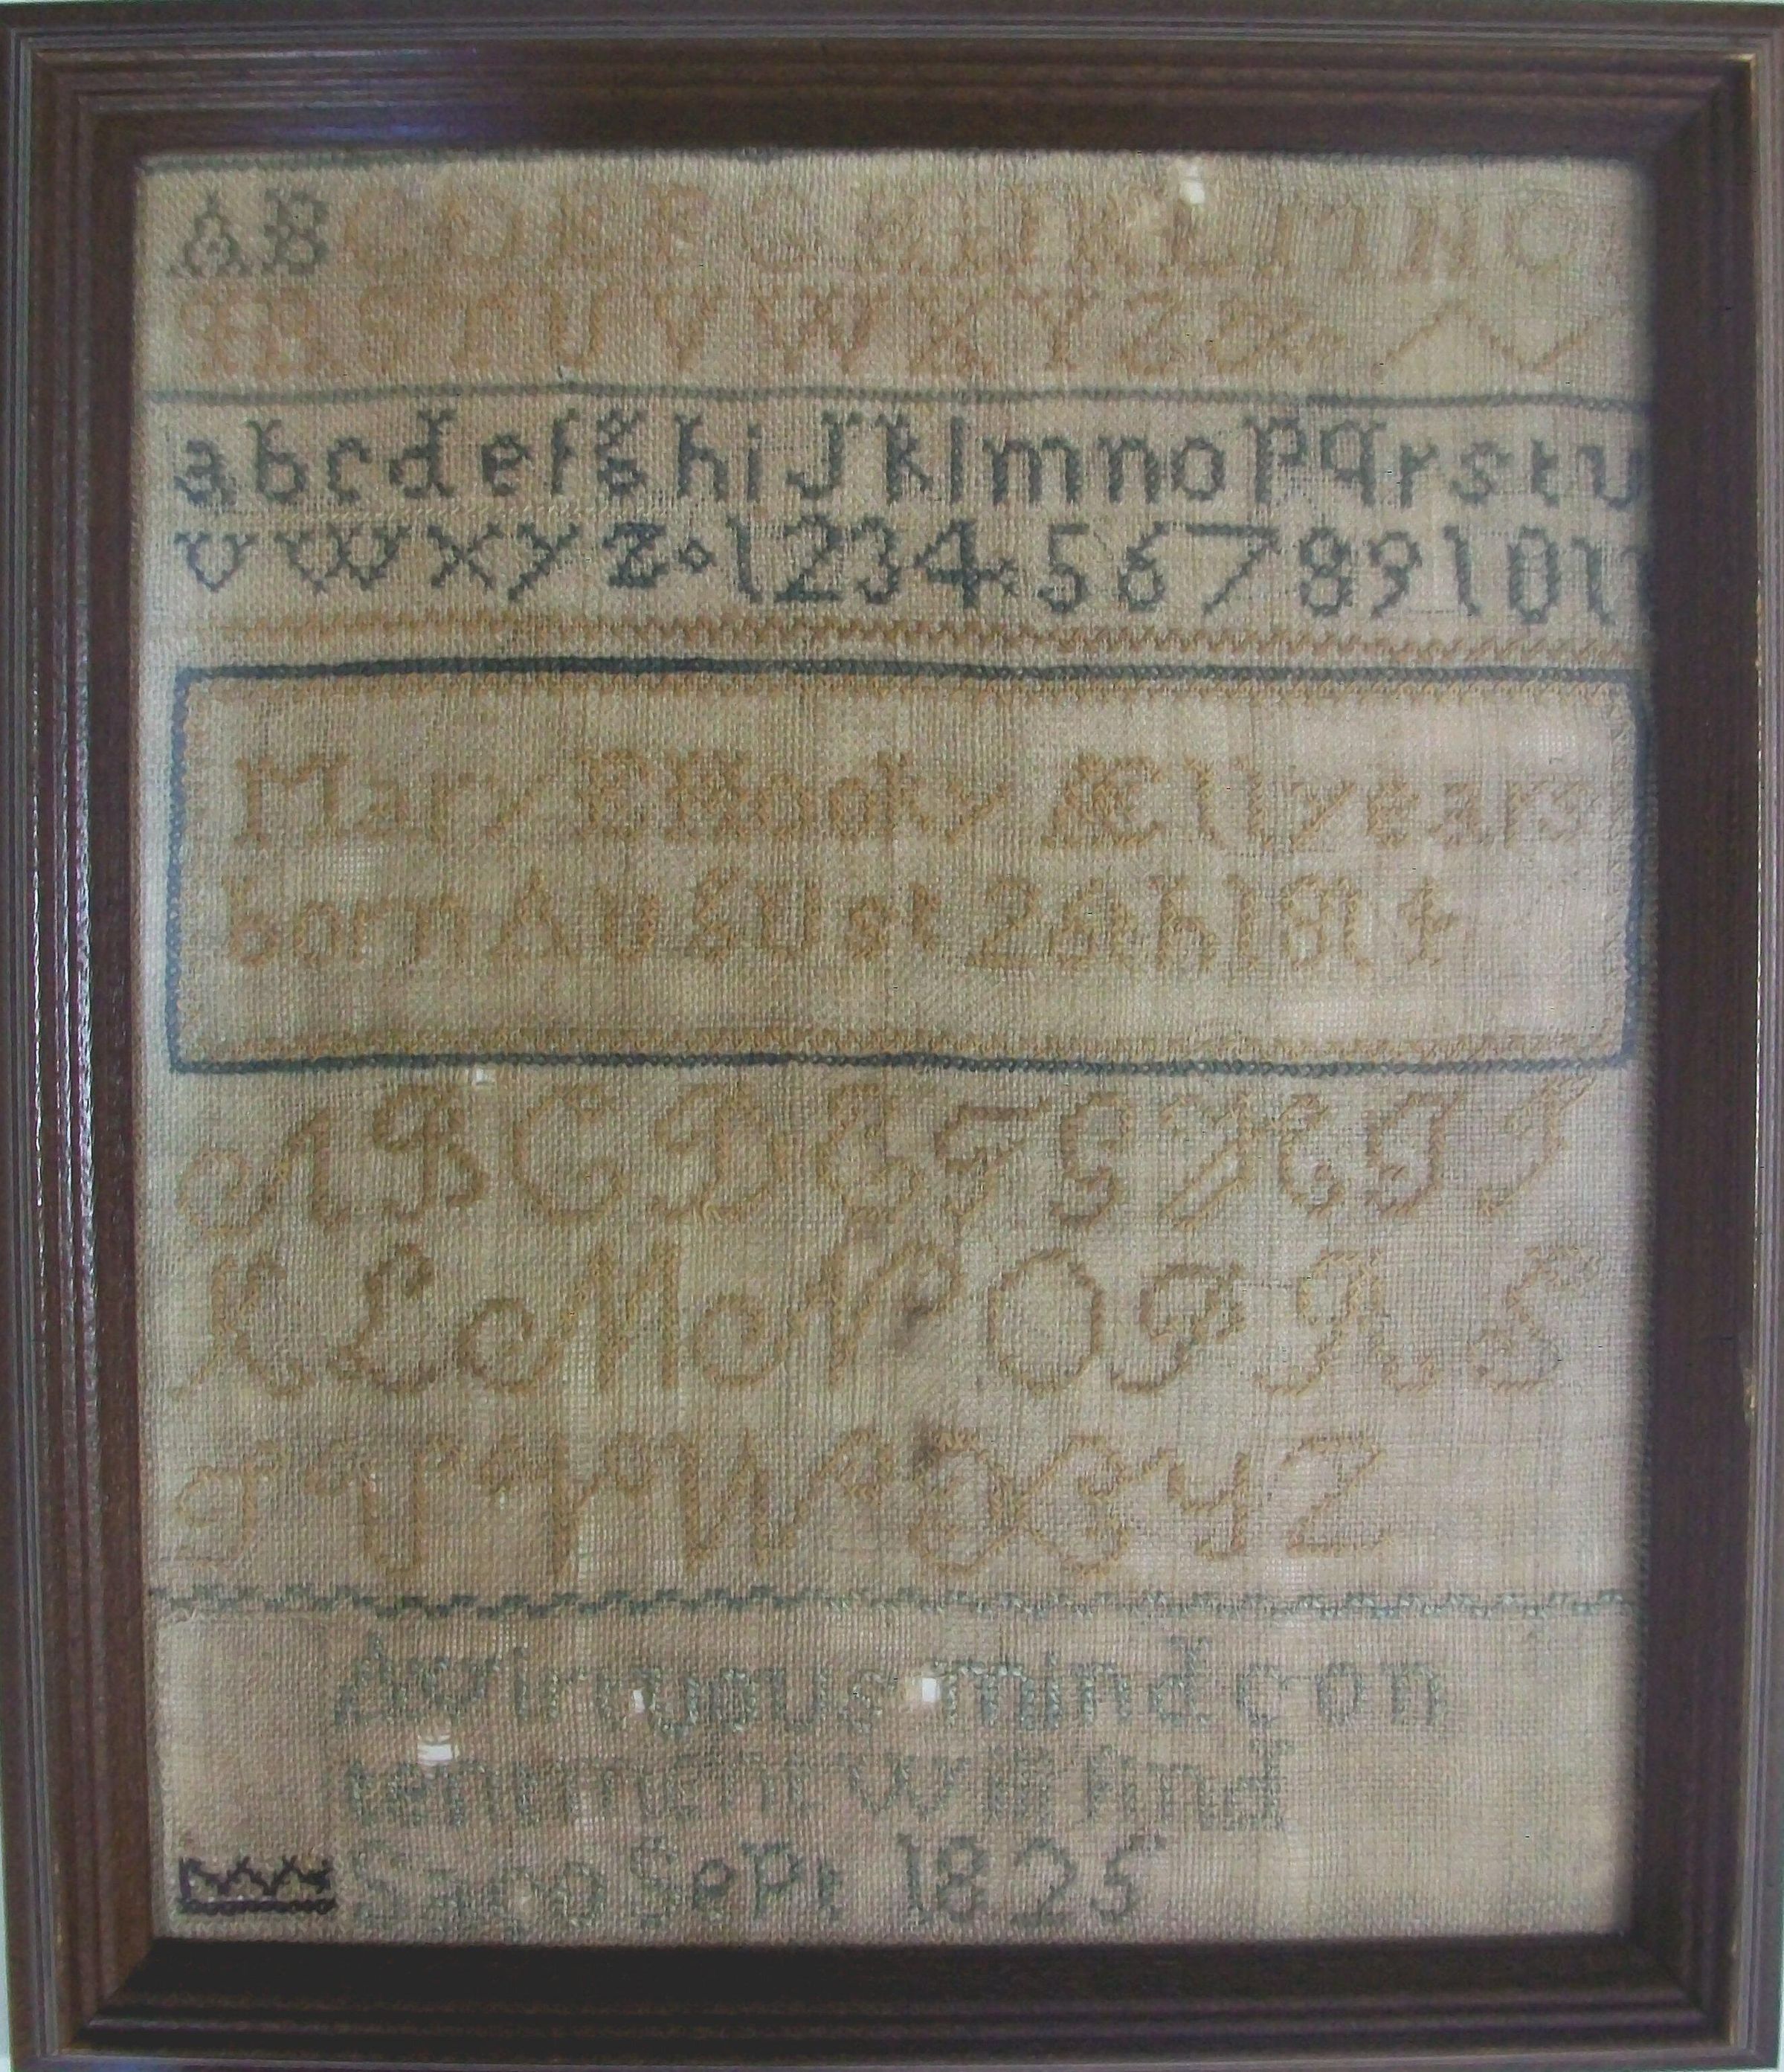 ABCDEFGHIJKLMNO
QRSTUVWXYZ&
abcdefghiJklmnopqrstu
vwxyz 1234 56789101
Mary E Æ 11 years
born AugUst 2 th 181
ABCDEFGHIJ
KLMNOPRS
TUVWXYZ
A virtuous mind con
tentment will find
Saco SePt 1825